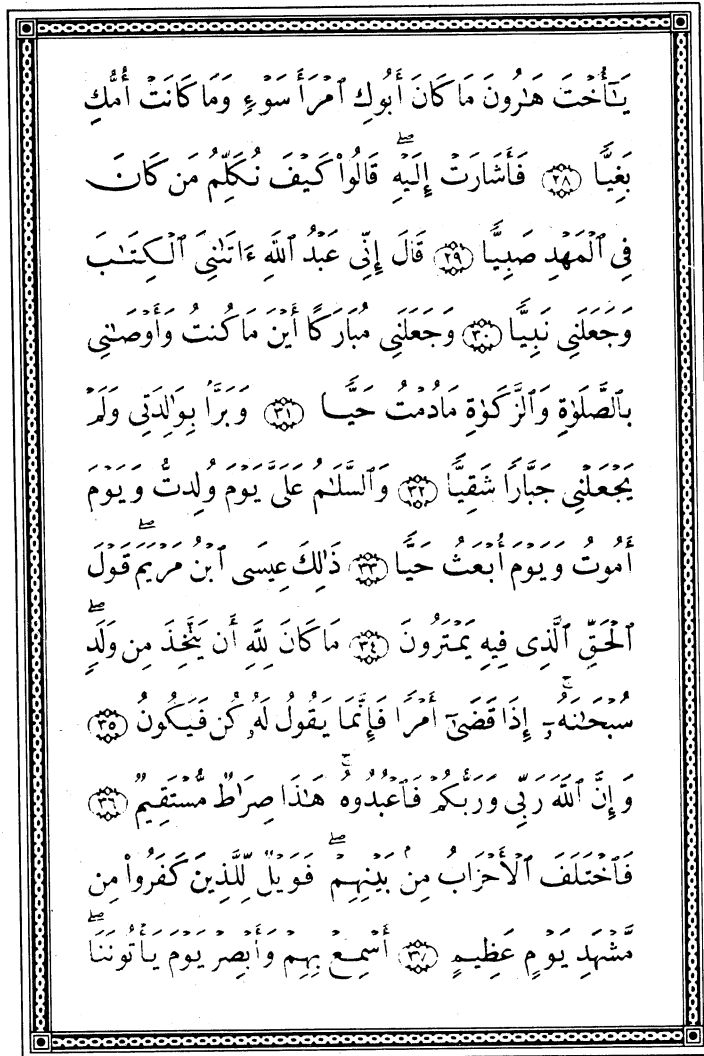 يَـٰٓأُخۡتَ هَـٰرُونَ مَا كَانَ أَبُوكِ ٱمۡرَأَ سَوۡءٖ وَمَا كَانَتۡ أُمُّكِ
بَغِيّٗا ۝٢٨ فَأَشَارَتۡ إِلَيۡهِۖ قَالُواْ كَيۡفَ نُكَلِّمُ مَن كَانَ
فِي ٱلۡمَهۡدِ صَبِيّٗا ۝٢٩ قَالَ إِنِّي عَبۡدُ ٱللَّهِ ءَاتَىٰنِيَ ٱلۡكِتَـٰبَ
وَجَعَلَنِي نَبِيّٗا ۝٣٠ وَجَعَلَنِي مُبَارَكًا أَيۡنَ مَا كُنتُ وَأَوۡصَـٰنِي
بِٱلصَّلَوٰةِ وَٱلزَّكَوٰةِ مَا دُمۡتُ حَيّٗا ۝٣١ وَبَرَّۢا بِوَٰلِدَتِي وَلَمۡ
يَجۡعَلۡنِي جَبَّارٗا شَقِيّٗا ۝٣٢ وَٱلسَّلَـٰمُ عَلَيَّ يَوۡمَ وُلِدتُّ وَيَوۡمَ
أَمُوتُ وَيَوۡمَ أُبۡعَثُ حَيّٗا ۝٣٣ ذَٰلِكَ عِيسَى ٱبۡنُ مَرۡيَمَۖ قَوۡلَ
ٱلۡحَقِّ ٱلَّذِي فِيهِ يَمۡتَرُونَ ۝٣٤ مَا كَانَ لِلَّهِ أَن يَتَّخِذَ مِن وَلَدٖۖ
سُبۡحَـٰنَهُۥٓۚ إِذَا قَضَىٰٓ أَمۡرٗا فَإِنَّمَا يَقُولُ لَهُۥ كُن فَيَكُونُ ۝٣٥
وَإِنَّ ٱللَّهَ رَبِّي وَرَبُّكُمۡ فَٱعۡبُدُوهُۚ هَـٰذَا صِرَٰطٞ مُّسۡتَقِيمٞ ۝٣٦
فَٱخۡتَلَفَ ٱلۡأَحۡزَابُ مِنۢ بَيۡنِهِمۡۖ فَوَيۡلٞ لِّلَّذِينَ كَفَرُواْ مِن
مَّشۡهَدِ يَوۡمٍ عَظِيمٍ ۝٣٧ أَسۡمِعۡ بِهِمۡ وَأَبۡصِرۡ يَوۡمَ يَأۡتُونَنَاۖ